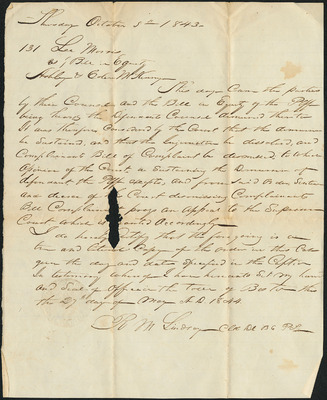 Thursday October 5th 1843
131 Lee Morris
vs } Bill in Equity
Ashby & Eden McKinney
This day Came the parties
by their Counsel and the Bill in Equity of the Plff
being heard the Defendants Counsel demurred thereto
It was therefore Considered by the Court that the demurrer
be Sustained, and that the Injunction be dissolved, and
Complainants Bill of Complaint be dismissed, to which
Opinion of the Court in Sustaining the Demurrer of
defendant the Plff excepts, and from said Order Sentence
and decree of the Court dismissing Complainants
Bill Complainant prays an Appeal to the Supreme
Court which is granted Accordingly
I do hereby Certify that the foregoing is a
true and Correct Copy of the order in this Cause
upon the day and date Specified in the Caption
In testimony whereof I have hereunto Set my hand
and Seal of Office in the Town of
this the 27th day of May A.D. 1844